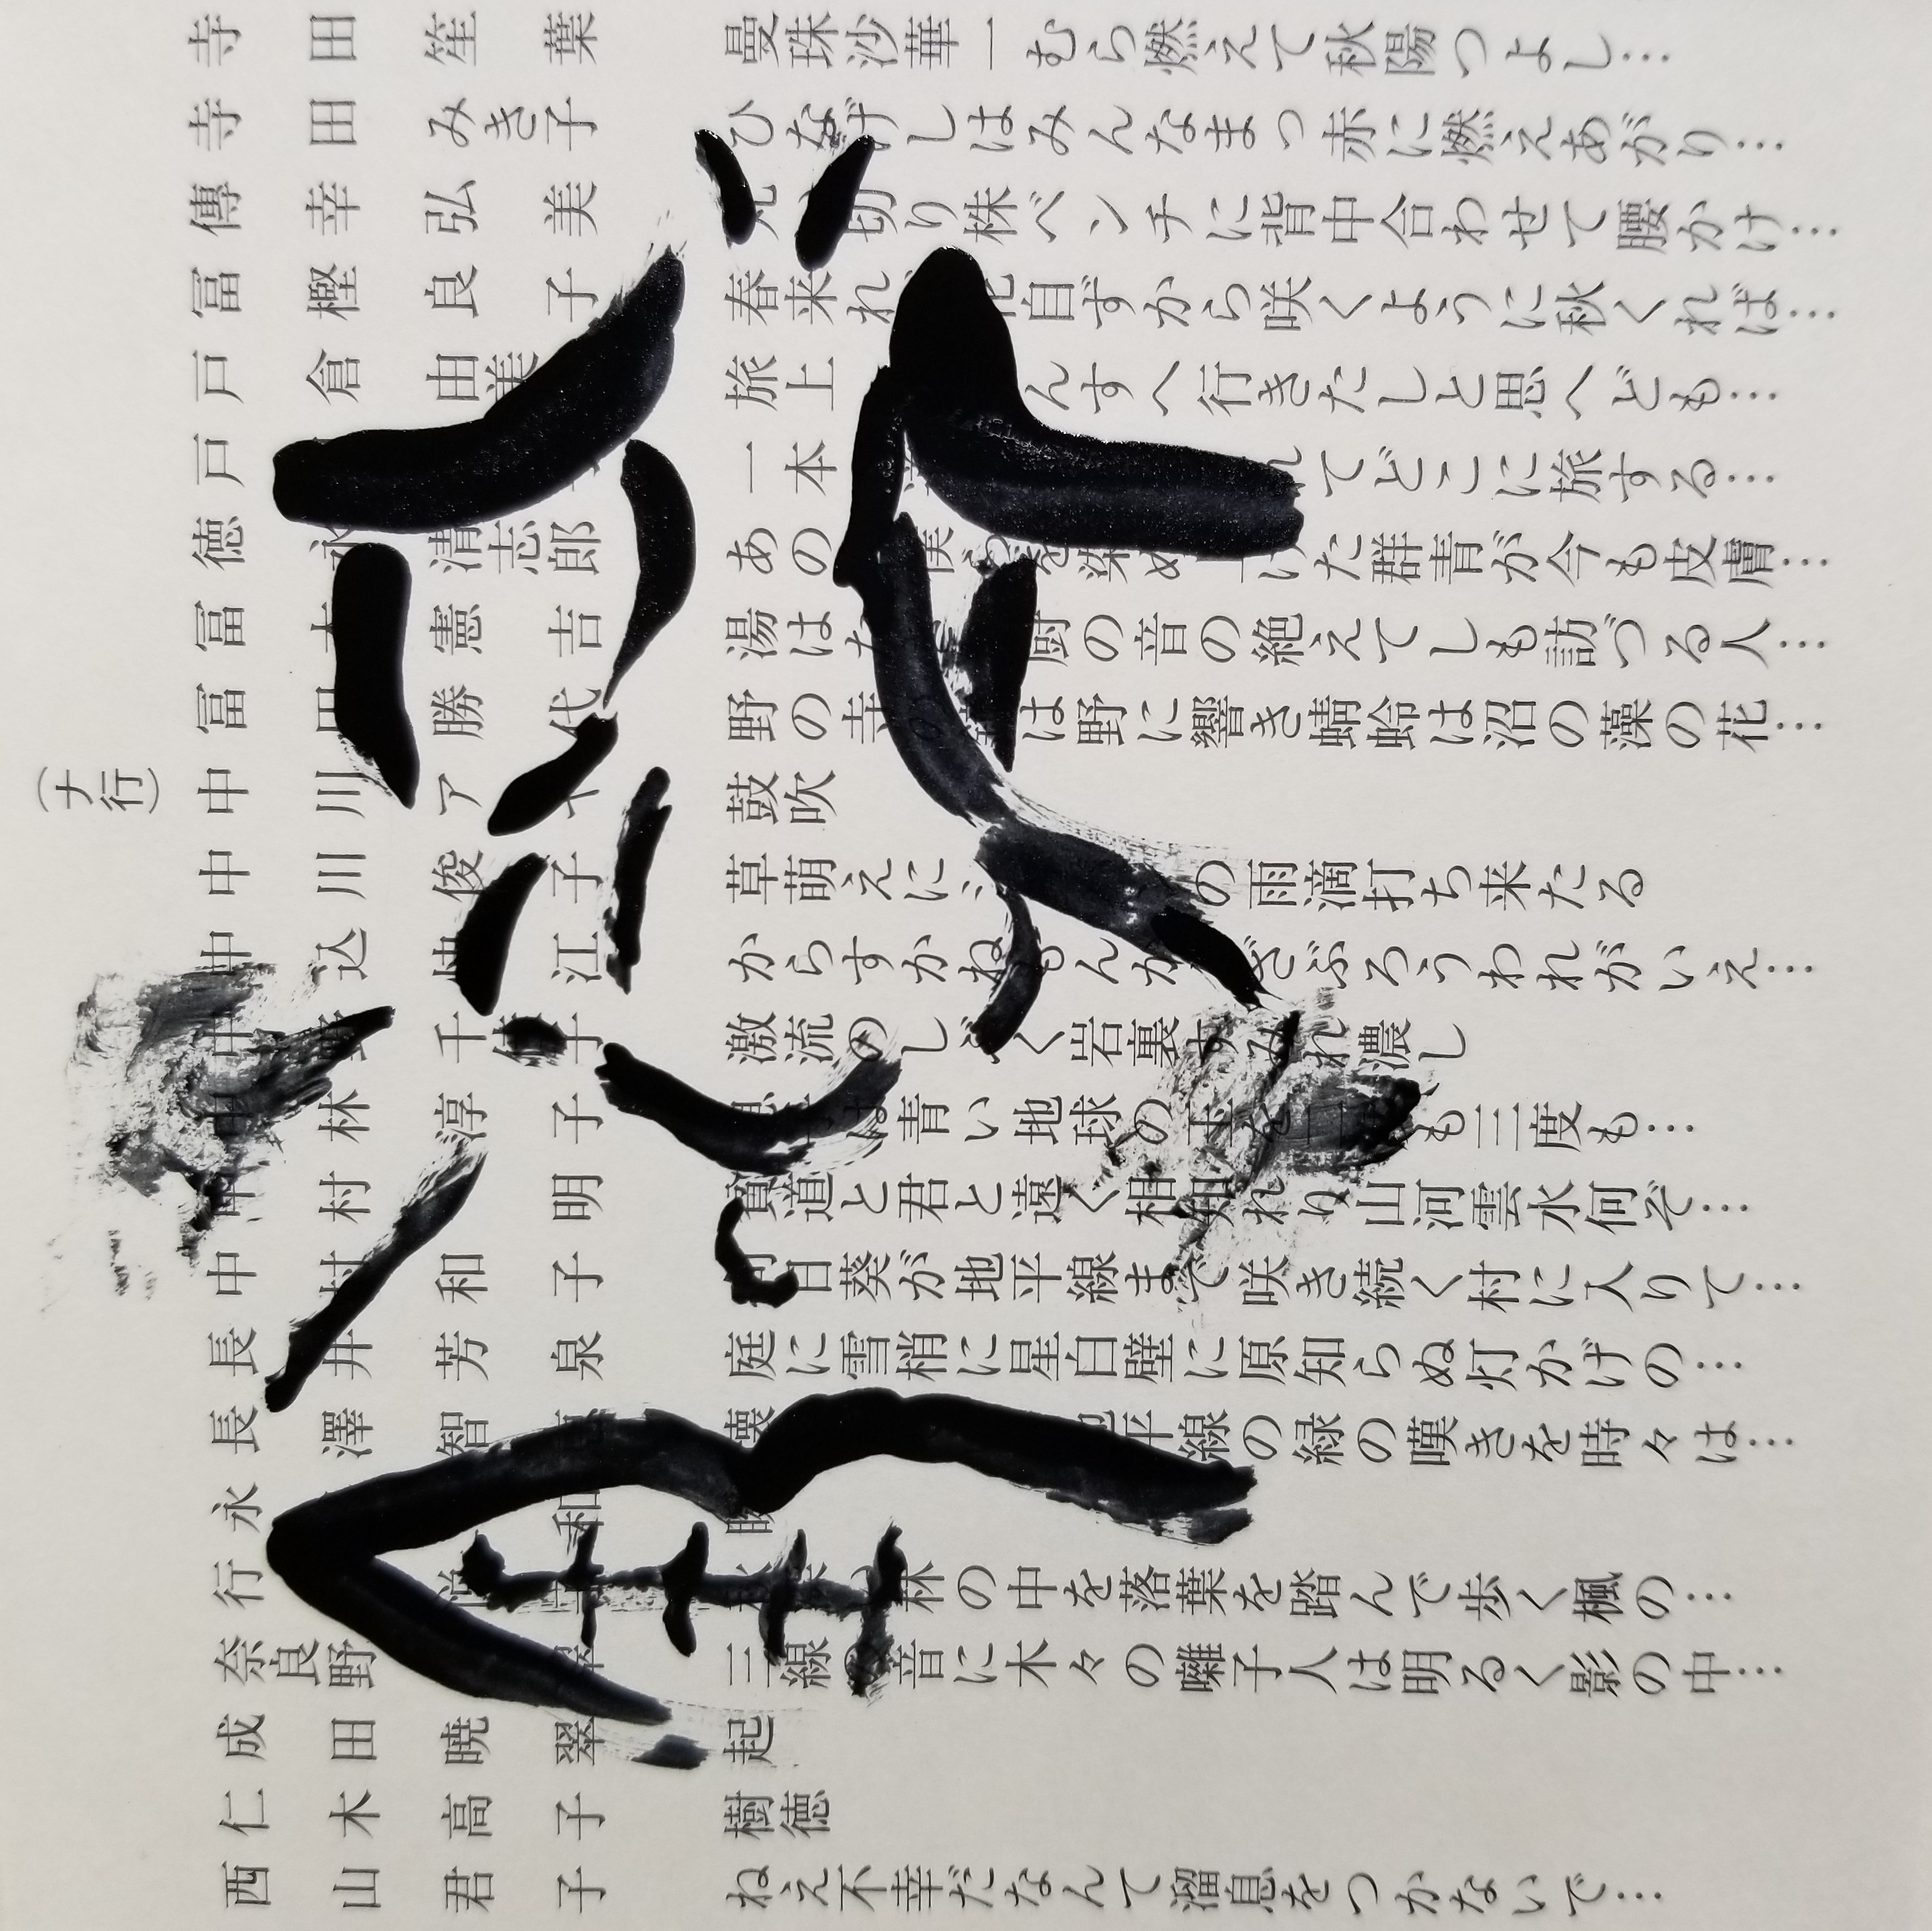 寺田笙葉 曼珠沙華一むら燃えて秋陽つよし…
寺田みき子 ひなげしはみんなまっ赤に燃えあがり…
傳幸弘美 切り株ベンチに背中合わせて腰かけ…
冨樫良子 春来れ 花自ずから咲くように秋くれば…
戸倉由美 旅上 んすへ行きたしと思へども…
戸 一本 れてどこに旅する…
徳永清志郎 あの 僕 を染め た群青が今も皮膚…
冨 憲吉 湯はた 厨の音の絶えてしも訪づる人…
冨田勝代 野の寺の は野に響き蜻蛉は沼の藻の花…
(ナ行)
中川ア 鼓吹
中川俊子 草萌えに の雨滴打ち来たる
中込 江 からすかねもんか ざぶろうわれがいえ…
中 千 子 激流のしぶく岩裏すみれ濃し
中林淳子 は青い地球の玉を二 も三度も…
中村 明 貫道と君と遠く相知れり山河雲水何ぞ…
中村和子 向日葵が地平線まで咲き続く村に入りて…
長井芳泉 庭に雪梢に星白壁に原知らぬ灯かげの…
長澤智 壊 地平線の緑の嘆きを時々は…
永 和
行 林の中を落葉を踏んで歩く楓の…
奈良野 翠 三線の音に木々の囃子人は明るく影の中…
成田曉翠 起
仁木高子 樹徳
西山君子 ねえ不幸だなんて溜息をつかないで…